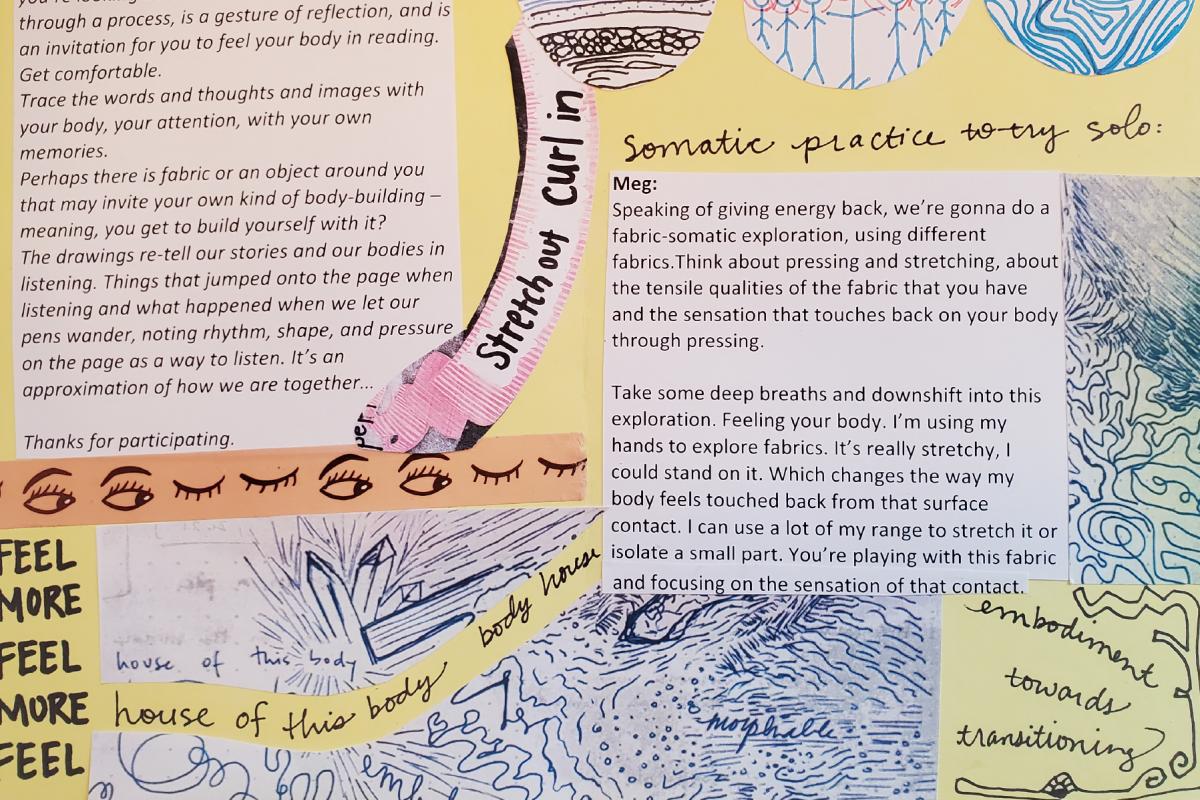 through a process, is a gesture of reflection, and is
an invitation for you to feel your body in reading.
Get comfortable.
Trace the words and thoughts and images with
your body, your attention, with your own
memories.
Perhaps there is fabric or an object around you
that may invite your own kind of body-building –
meaning, you get to build yourself with it?
The drawings re-tell our stories and our bodies in
listening. Things that jumped onto the page when
listening and what happened when we let our
pens wander, noting rhythm, shape, and pressure
on the page as a way to listen. It's an
approximation of how we are together...
Thanks for participating.
Stretch out Curl in
somatic practice to try solo:
Meg:
Speaking of giving energy back, we're gonna do a
fabric-somatic exploration, using different
fabrics.Think about pressing and stretching, about
the tensile qualities of the fabric that you have
and the sensation that touches back on your body
through pressing.
Take some deep breaths and downshift into this
exploration. Feeling your body. I'm using my
hands to explore fabrics. It's really stretchy, I
could stand on it. Which changes the way my
body feels touched back from that surface
contact. I can use a lot of my range to stretch it or
isolate a small part. You're playing with this fabric
and focusing on the sensation of that contact.
FEEL
MORE
FEEL
MORE
FEEL
house of this body
house of this body body house
morphable
embodiment
towards
transitioning